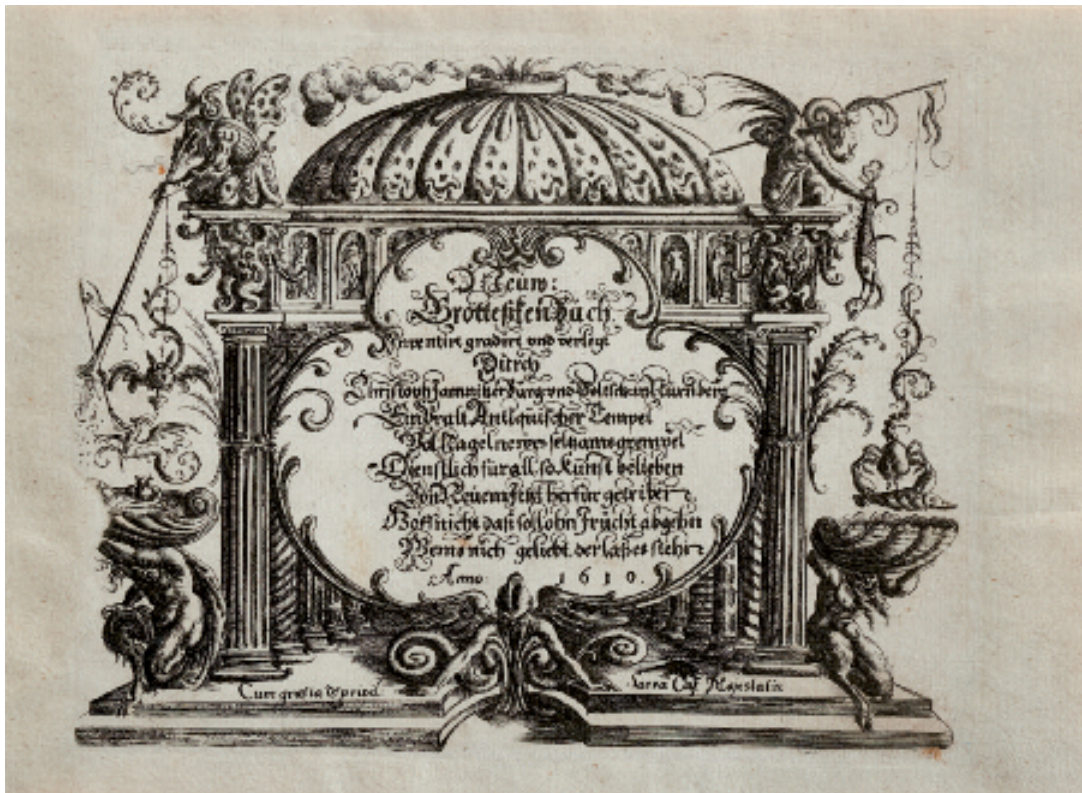 Neuw:
Grottessken Buch
Inventirt gradirt und verlegt
Durch
Christoph Jamnitzer Burg und Goltschmit Nurnberg
Ein Vralt Antiquischer Tempel
Vol Nagelnewes selzams grempel
Dienstlich für all so Kunst belieben
Von Neuem itzt herfür getriben
Hoff nicht das so lohn frucht abgehn
Wems nich geliebt der laß es stehn
Anno 1610.
Cum gratia & privil.
Sacra Cæs Majestatis